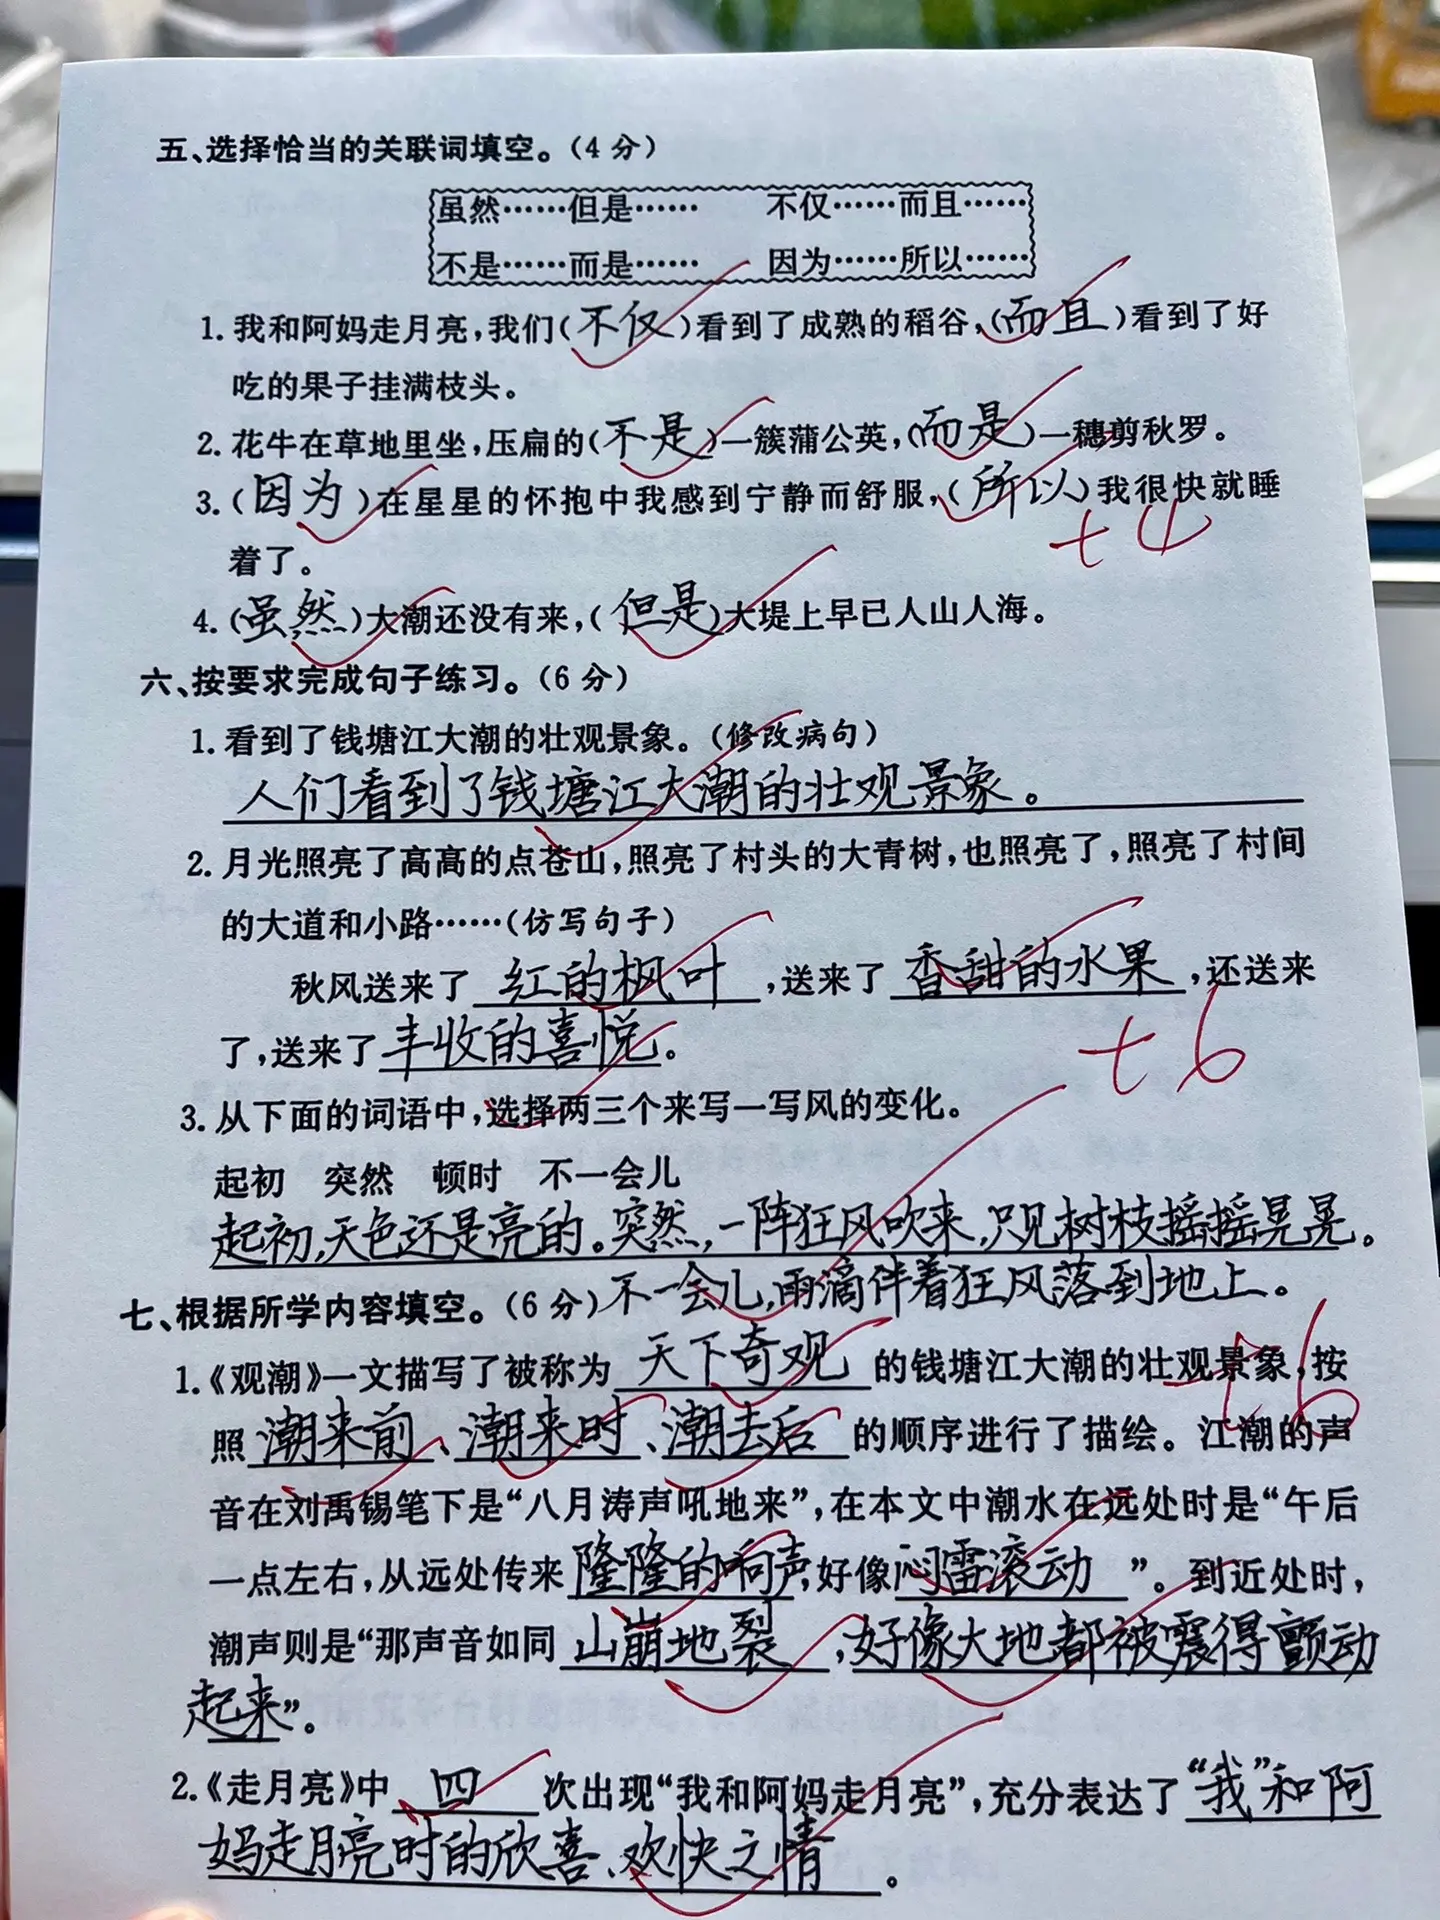 五、选择恰当的关联词填空。(4分)
虽然……但是…… 不仅……而且……
不是……而是…… 因为……所以……
1. 我和阿妈走月亮,我们(不仅)看到了成熟的稻谷,(而且)看到了好
吃的果子挂满枝头。
2. 花牛在草地里坐,压扁的(不是)一簇蒲公英,(而是)一穗剪秋罗。
3. (因为)在星星的怀抱中我感到宁静而舒服,(所以)我很快就睡
着了。
+4
4. (虽然)大潮还没有来,(但是)大堤上早已人山人海。
六、按要求完成句子练习。(6分)
1. 看到了钱塘江大潮的壮观景象。(修改病句)
人们看到了钱塘江大潮的壮观景象。
2. 月光照亮了高高的点苍山,照亮了村头的大青树,也照亮了,照亮了村间
的大道和小路……(仿写句子)
秋风送来了 红的枫叶 ,送来了 香甜的水果 ,还送来
了,送来了丰收的喜悦。
+6
3. 从下面的词语中,选择两三个来写一写风的变化。
起初 突然 顿时 不一会儿
起初,天色还是亮的。突然,一阵狂风吹来,只见树枝摇摇晃晃。
七、根据所学内容填空。(6分) 不一会儿,雨滴伴着狂风落到地上。
1.《观潮》一文描写了被称为 天下奇观 的钱塘江大潮的壮观景象,按
+6
照 潮来前 、潮来时 、潮去后 的顺序进行了描绘。江潮的声
音在刘禹锡笔下是“八月涛声吼地来”,在本文中潮水在远处时是“午后
一点左右,从远处传来 隆隆的响声,好像闷雷滚动 ”。到近处时,
潮声则是“那声音如同 山崩地裂 ,好像大地都被震得颤动
起来”。
2.《走月亮》中 四 次出现“我和阿妈走月亮”,充分表达了“我”和阿
妈走月亮时的欣喜、欢快之情 。